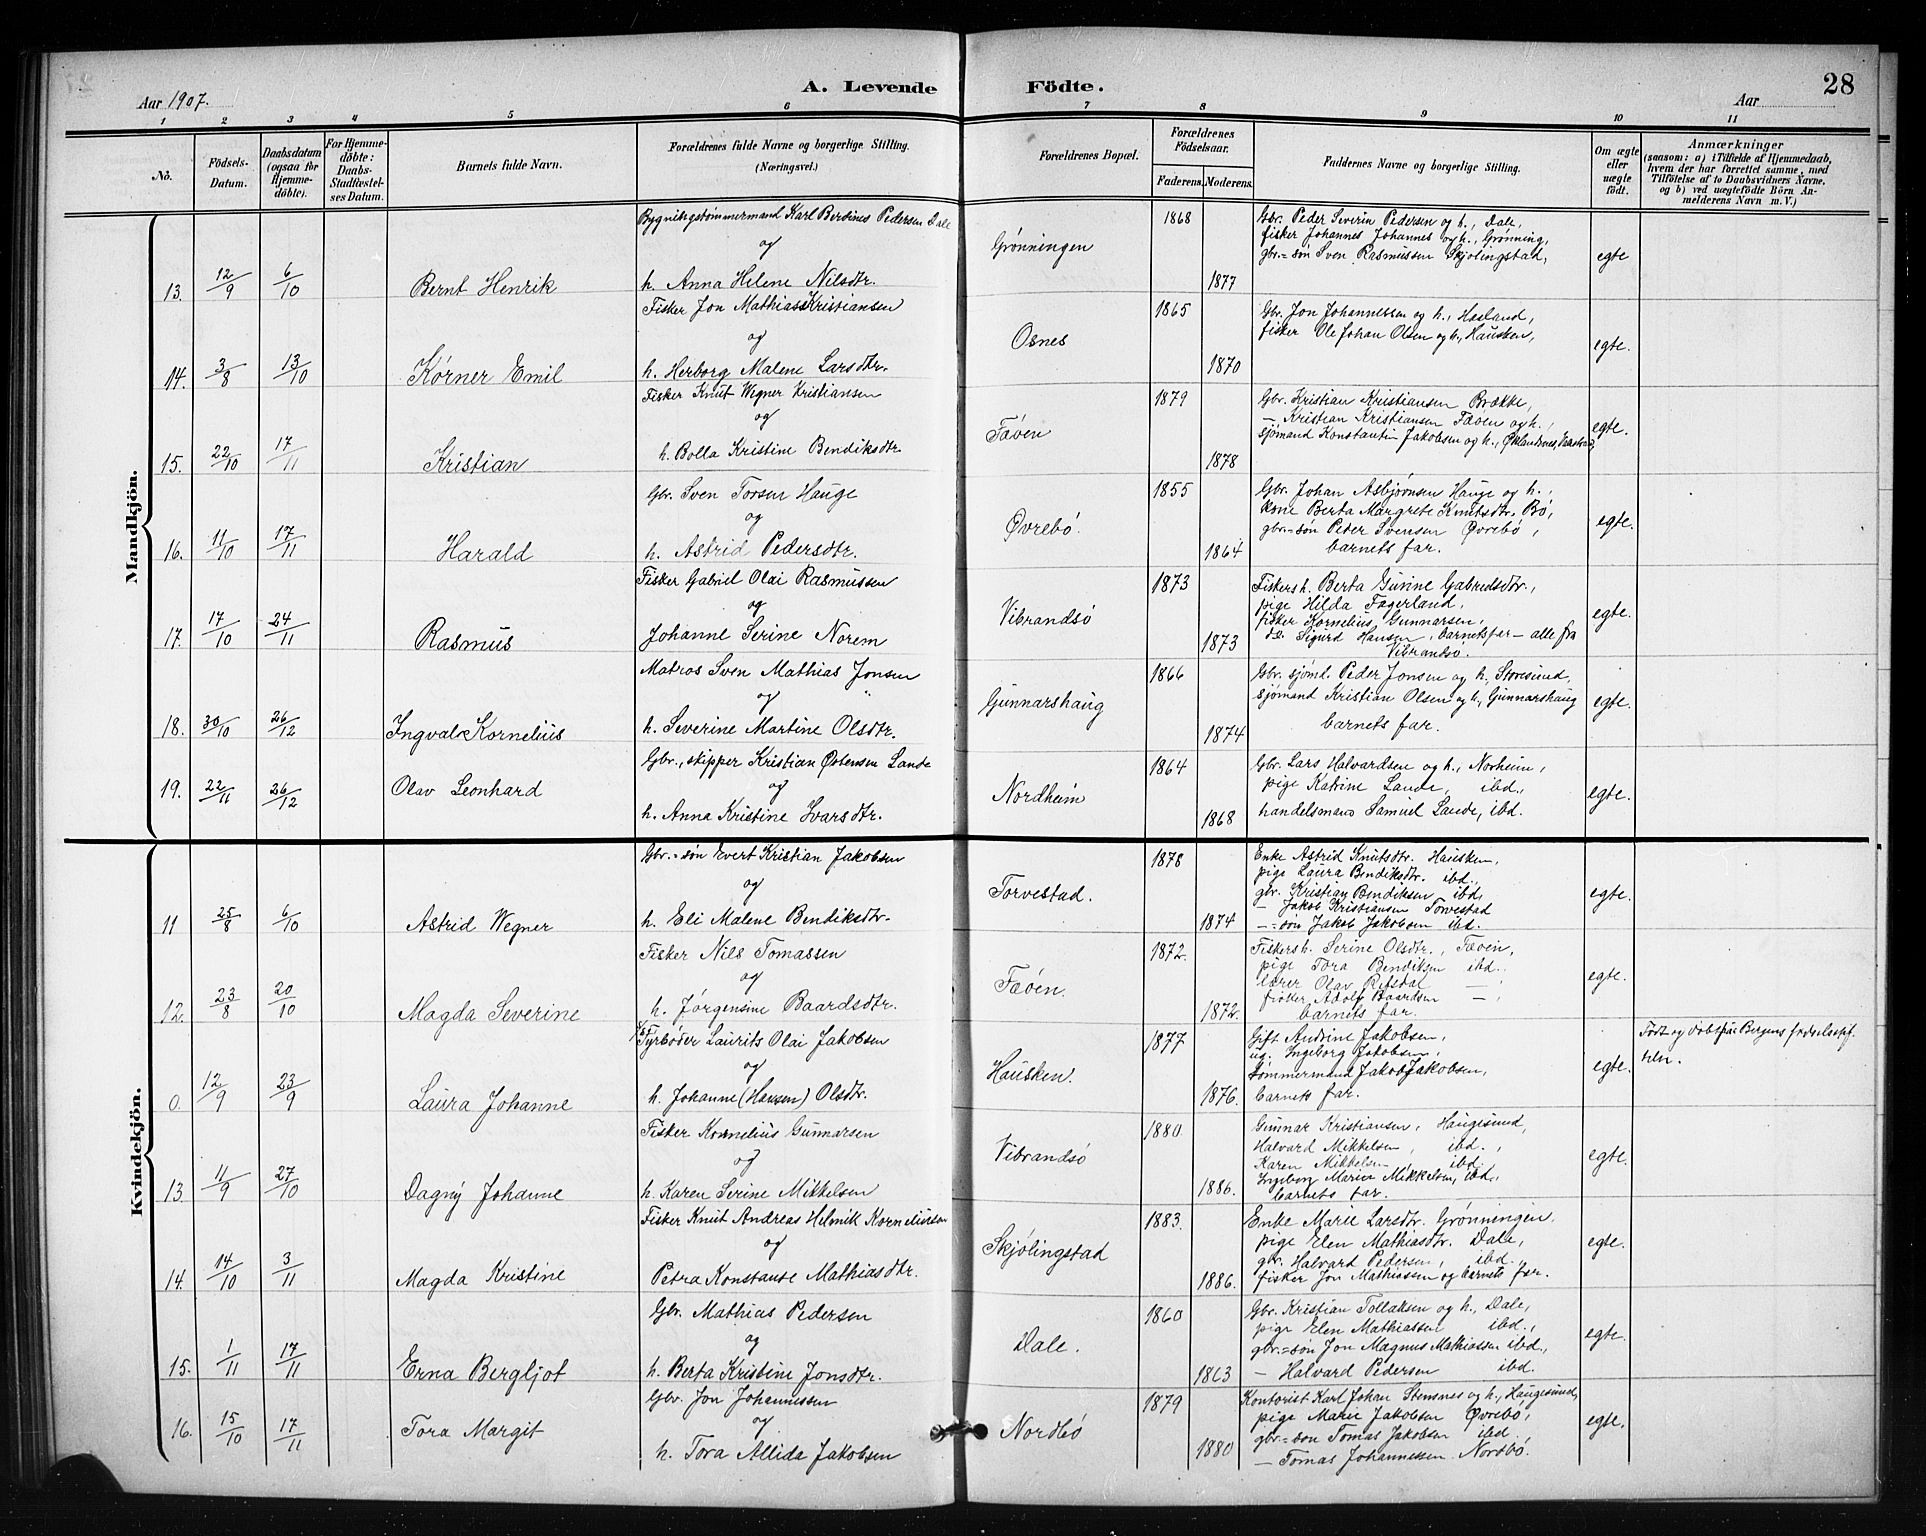 Aar 1907.
A. Levende Födte.
Aar
28
1 2 3 4 5 6 7 8 9 10 11
No.
Födsels-Datum.
Daabsdatum (ogsaa for Hjemmedøbte).
For Hjemmedøbte: Daabs-Stadfæstelses Datum.
Barnets fulde Navn.
Forældrenes fulde Navne og borgerlige Stilling. (Næringsvei.)
Forældrenes Bopæl.
Forældrenes Födselsaar.
Faderens. Moderens.
Faddernes Navne og borgerlige Stilling.
Om ægte eller uægte født.
Anmærkninger
(saasom: a) i Tilfælde af Hjemmedaab, hvem der har forrettet samme, med Tilföielse af to Daabsvidners Navne, og b) ved uægtefödte Börn Anmelderens Navn m. V.)
Mandkjön.
13. 12/9 6/10 Bernt Henrik
Bygningstømmermand Karl Bertines Pedersen Dale
og
h. Anna Helene Nilsdtr.
Grønningen
1868
1877
Gbr. Peder Severin Pedersen og h., Dale,
fisker Johannes Johannes og h., Grønning,
gbr.=søn Sven Rasmussen Skjølingstad,
egte
14. 3/8 13/10 Kørner Emil
Fisker Jon Mathias Kristiansen
og
h. Herborg Malene Larsdtr.
Osnes
1865
1870
Gbr. Jon Johannessen og h., Hasland,
fisker Ole Johan Olsen og h., Hausken,
egte.
15. 22/10 17/11 Kristian
Fisker Knut Wegner Kristiansen
og
h. Bolla Kristine Bendiksdtr.
Fæøen
1879
1878
Gbr. Kristian Kristiansen Brække,
— Kristian Kristiansen Fæøen og h.,
sjømand Konstantin Jakobsen og h.,
egte.
16. 11/10 17/11 Harald
Gbr. Sven Torsen Hauge
og
h. Astrid Pedersdtr.
Øvrebø.
1855
1864
Gbr. Johan Asbjørnsen Hauge og h.,
kone Berta Margrete Knutsdtr. Bø,
gbr.=søn Peder Svensen Øvrebø,
barnets far.
egte.
17. 17/10 24/11 Rasmus
Fisker Gabriel Olai Rasmussen
og
Johanne Serine Norem
Vibrandsø
1873
1873
Fiskers h. Berta Gurine Gabrielsdtr.,
pige Hilda Fagerland,
fisker Kornelius Gunnarsen,
do. Sigurd Hansen, barnets far — alle fra
Vibrandsø.
egte.
18. 30/10 26/12 Ingvald Kornelius
Matros Sven Mathias Jonsen
og
h. Severine Martine Olsdtr.
Gunnarshaug
1866
1874
Gbr. sjøml. Peder Jonsen og h., Storesund,
sjømand Kristian Olsen og h., Gunnarshaug
barnets far.
egte.
19. 22/11 26/12 Olav Leonhard
Gbr., skipper Kristian Østensen Lande
og
h. Anna Kristine Ivarsdtr.
Nordheim
1864
1868
Gbr. Lars Halvardsen og h., Norheim,
pige Katrine Lande, ibd.,
handelsmand Samuel Lande, ibd.
egte.
Kvindekjön.
11 25/8 6/10 Astrid Wegner
Gbr.=søn Evert Kristian Jakobsen
og
h. Eli Malene Bendiksdtr.
Torvestad.
1878
1874
Enke Astrid Knutsdtr. Hausken,
pige Laura Bendiksdtr. ibd.,
gbr. Kristian Bendiksen ibd,
— Jakob Kristiansen Torvestad
—=søn Jakob Jakobsen ibd.
egte.
12. 23/8 20/10 Magda Severine
Fisker Nils Tomassen
og
h. Jørgensine Baardsdtr.
Fæøen.
1872.
1872.
Fiskers h. Serine Olsdtr., Fæøen,
pige Tora Bendiksen ibd.
lærer Olav Refsdal —,
fisker Adolf Baardsen —,
barnets far.
egte.
0. 12/9 23/9 Laura Johanne
Fyrbøder Laurits Olai Jakobsen
og
h. Johanne (Hansen) Olsdtr.
Hausken.
1877
1876.
Gift Andrine Jakobsen,
ug. Ingeborg Jakobsen,
tømmermand Jakob Jakobsen,
barnets far.
egte.
Født og døbt paa Bergens fødselsstif-
telse.
13. 11/9 27/10 Dagny Johanne
Fisker Kornelius Gunnarsen
og
h. Karen Serine Mikkelsen
Vibrandsø
1880
1886.
Gunnar Kristiansen, Haugesund,
Halvard Mikkelsen, ibd.,
Karen Mikkelsen ibd.
Ingeborg Marie Mikkelsen, ibd.,
barnets far.
egte.
14. 14/10 3/11 Magda Kristine
Fisker Knut Andreas Helmik Korneliusen
og
Petra Konstanse Mathiasdtr.
Skjølingstad
1883.
1886.
Enke Marie Larsdtr. Grønningen,
pige Elen Mathiasdtr. Dale,
gbr. Halvard Pedersen, ibd.,
fisker Jon Mathiassen og barnets far.
egte.
15. 1/11 17/11 Erna Bergljot
Gbr. Mathias Pedersen
og
h. Berta Kristine Jonsdtr.
Dale.
1860
1863
Gbr. Kristian Tollaksen og h., Dale,
pige Elen Mathiassen ibd.,
gbr.=søn Jon Magnus Mathiassen ibd.,
— Halvard Pedersen ibd.
egte.
16. 15/10 17/11 Tora Margit
Gbr. Jon Johannessen
og
h. Tora Allida Jakobsen
Nordbø
1879
1880
Kontorist Karl Johan Stensnes og h., Haugesund,
pige Marie Jakobsen Øvrebø,
gbr.=søn Tomas Jakobsen ibd.
— Tomas Johannessen Nordbø.
egte.